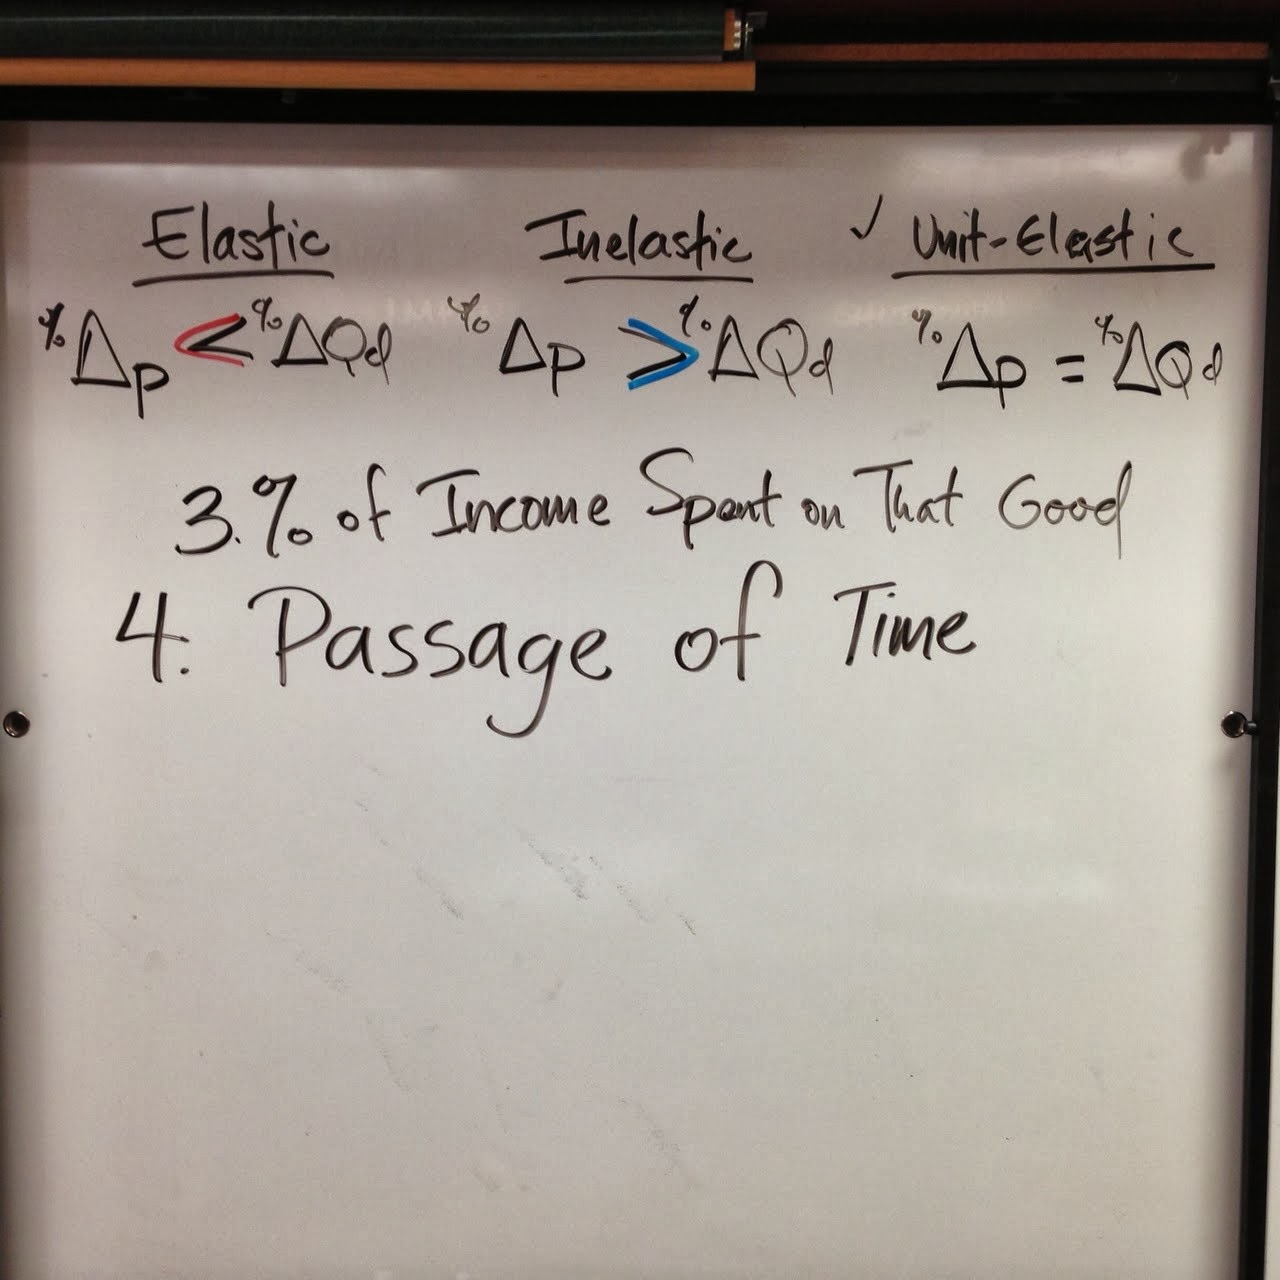 Elastic Inelastic ✓ Unit-Elastic
%Δp < %ΔQd %Δp > %ΔQd %Δp = %ΔQd
3. % of Income Spent on That Good
4. Passage of Time